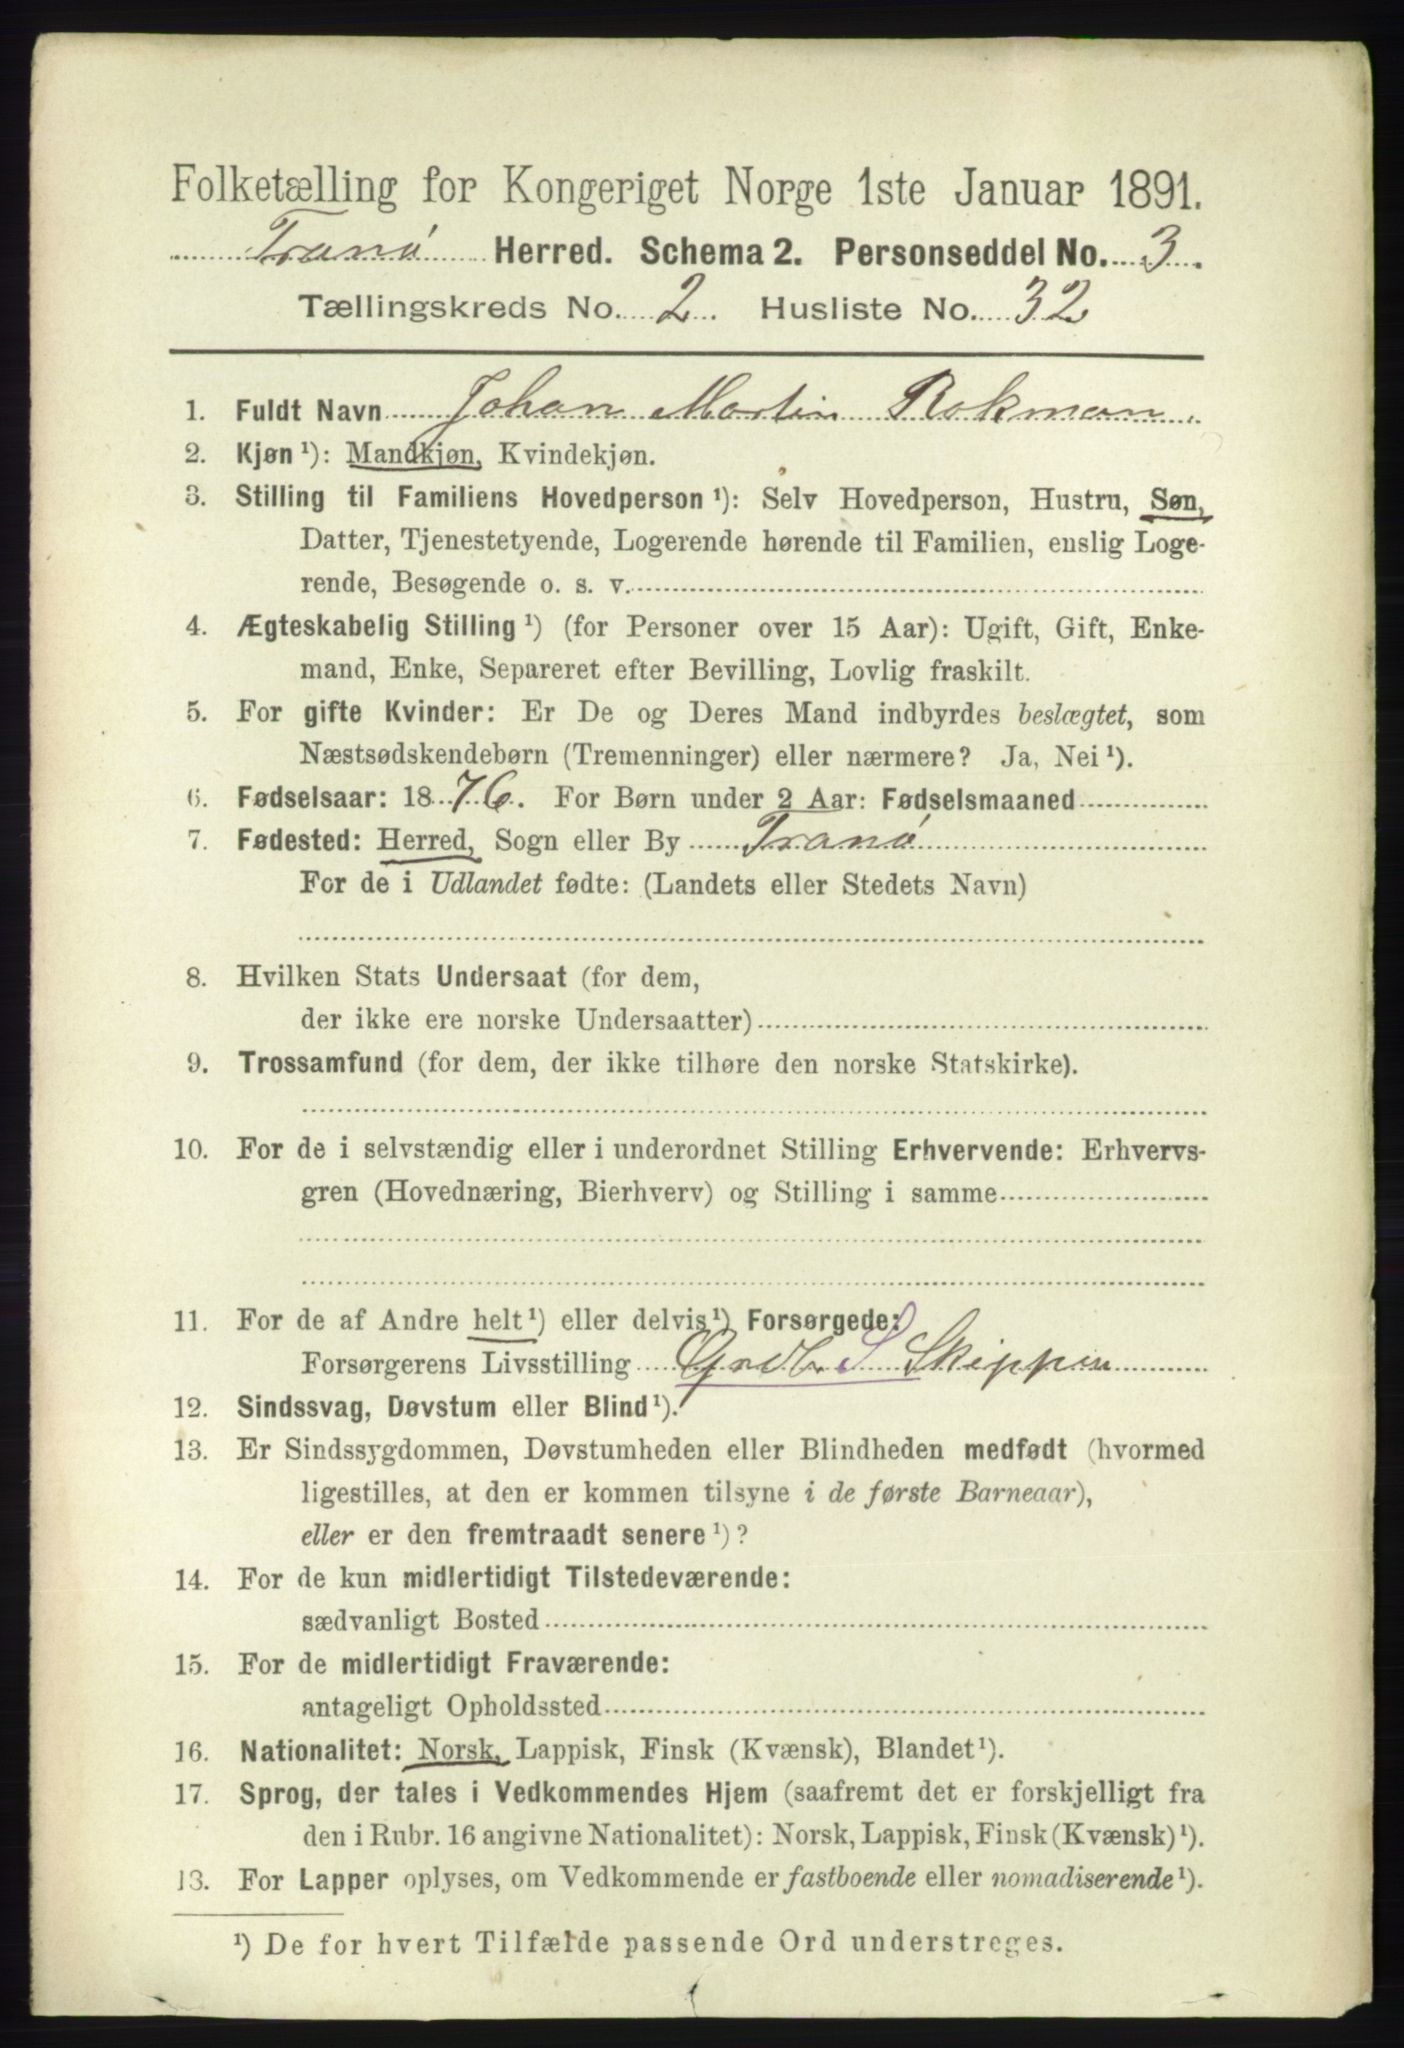 Folketælling for Kongeriget Norge 1ste Januar 1891.
Tranø Herred. Schema 2. Personseddel No. 3.
Tællingskreds No. 2. Husliste No. 32
1. Fuldt Navn Johan Martin Rokman
2. Kjøn ¹): Mandkjøn, Kvindekjøn.
3. Stilling til Familiens Hovedperson ¹): Selv Hovedperson, Hustru, Søn,
Datter, Tjenestetyende, Logerende hørende til Familien, enslig Loge-
rende, Besøgende o. s. v.
4. Ægteskabelig Stilling ¹) (for Personer over 15 Aar): Ugift, Gift, Enke-
mand, Enke, Separeret efter Bevilling, Lovlig fraskilt.
5. For gifte Kvinder: Er De og Deres Mand indbyrdes beslægtet, som
Næstsødskendebørn (Tremenninger) eller nærmere? Ja, Nei ¹).
6. Fødselsaar: 1876. For Børn under 2 Aar: Fødselsmaaned
7. Fødested: Herred, Sogn eller By Tranø
For de i Udlandet fødte: (Landets eller Stedets Navn)
8. Hvilken Stats Undersaat (for dem,
der ikke ere norske Undersaatter)
9. Trossamfund (for dem, der ikke tilhøre den norske Statskirke).
10. For de i selvstændig eller i underordnet Stilling Erhvervende: Erhvervs-
gren (Hovednæring, Bierhverv) og Stilling i samme
11. For de af Andre helt ¹) eller delvis ¹) Forsørgede:
Forsørgerens Livsstilling Grdb. S Skipper
12. Sindssvag, Døvstum eller Blind ¹).
13. Er Sindssygdommen, Døvstumheden eller Blindheden medfødt (hvormed
ligestilles, at den er kommen tilsyne i de første Barneaar),
eller er den fremtraadt senere ¹)?
14. For de kun midlertidigt Tilstedeværende:
sædvanligt Bosted
15. For de midlertidigt Fraværende:
antageligt Opholdssted
16. Nationalitet: Norsk, Lappisk, Finsk (Kvænsk), Blandet ¹).
17. Sprog, der tales i Vedkommendes Hjem (saafremt det er forskjelligt fra
den i Rubr. 16 angivne Nationalitet): Norsk, Lappisk, Finsk (Kvænsk) ¹).
13. For Lapper oplyses, om Vedkommende er fastboende eller nomadiserende ¹).
¹) De for hvert Tilfælde passende Ord understreges.